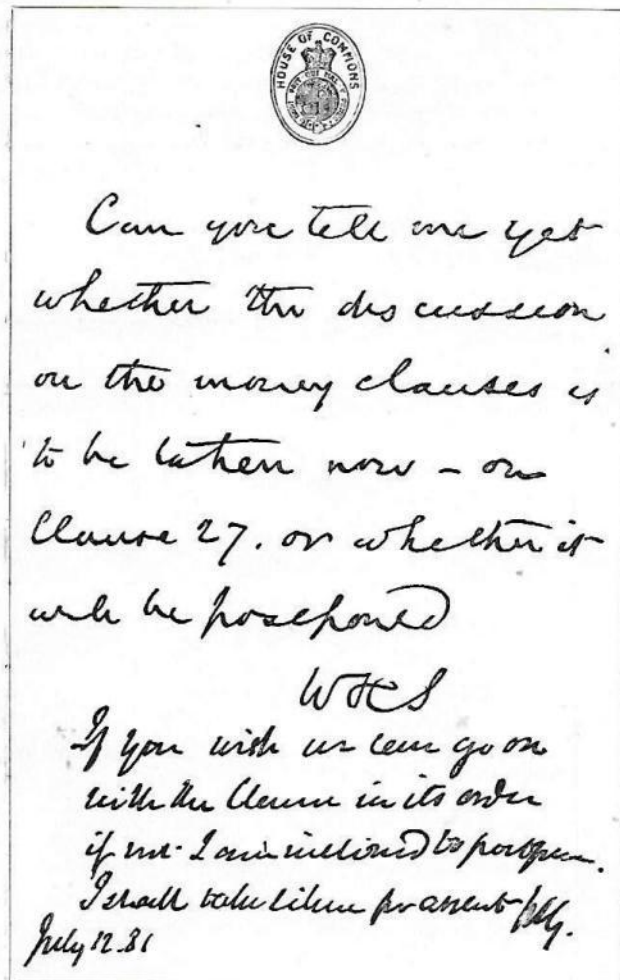 HOUSE OF COMMONS
Can you tell me yet
whether the discussion
on the money clauses is
to be taken now – on
Clause 27. or whether it
will be postponed
WHS
If you wish we can go on
with the Clause in its order
if not I am inclined to postpone.
I shall take silence for assent
July 12.81